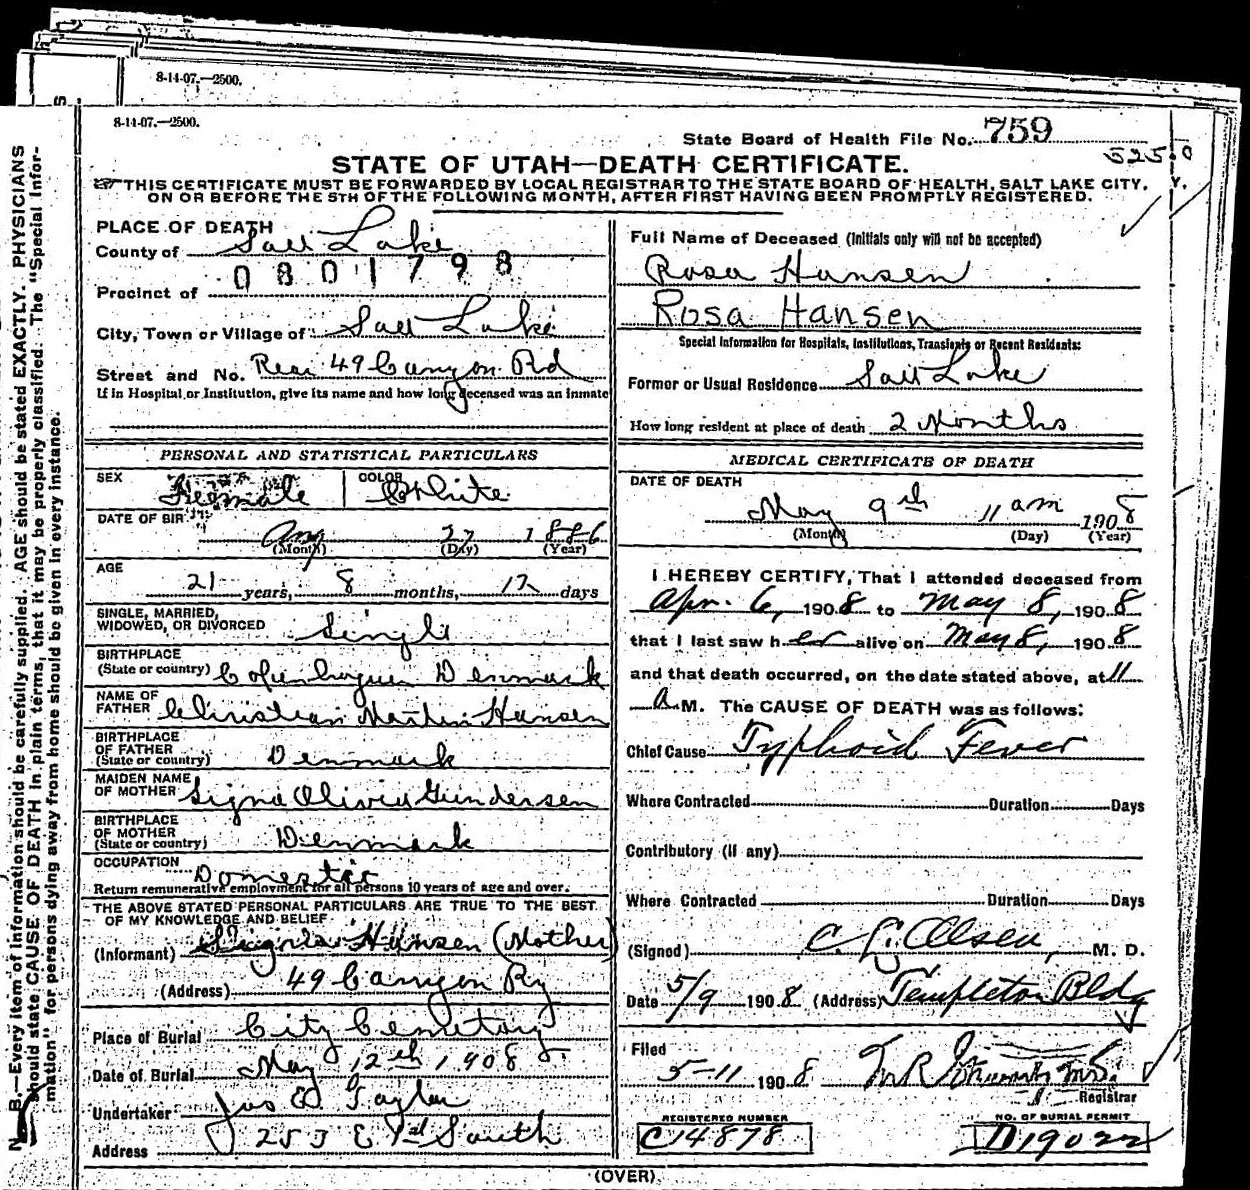 8-14-07.—2500.
8-14-07.—2500.
State Board of Health File No. 759
525.0
STATE OF UTAH—DEATH CERTIFICATE.
THIS CERTIFICATE MUST BE FORWARDED BY LOCAL REGISTRAR TO THE STATE BOARD OF HEALTH, SALT LAKE CITY,
ON OR BEFORE THE 5TH OF THE FOLLOWING MONTH, AFTER FIRST HAVING BEEN PROMPTLY REGISTERED.
PLACE OF DEATH
County of Salt Lake
0801798
Precinct of
City, Town or Village of Salt Lake
Street and No. Rear 49 Canyon Rd
If in Hospital or Institution, give its name and how long deceased was an inmate
Full Name of Deceased (Initials only will not be accepted)
Rosa Hansen
Rosa Hansen
Special Information for Hospitals, Institutions, Transients or Recent Residents:
Former or Usual Residence Salt Lake
How long resident at place of death 2 Months
PERSONAL AND STATISTICAL PARTICULARS
SEX Feemale COLOR White
DATE OF BIRTH Aug 27 1886
(Month) (Day) (Year)
AGE
21 years, 8 months, 12 days
SINGLE, MARRIED,
WIDOWED, OR DIVORCED Single
BIRTHPLACE
(State or country) Copenhagen Denmark
NAME OF
FATHER Christian Martin Hansen
BIRTHPLACE
OF FATHER
(State or country) Denmark
MAIDEN NAME
OF MOTHER Signa Olivia Gundersen
BIRTHPLACE
OF MOTHER
(State or country) Denmark
OCCUPATION Domestic
Return remunerative employment for all persons 10 years of age and over.
THE ABOVE STATED PERSONAL PARTICULARS ARE TRUE TO THE BEST
OF MY KNOWLEDGE AND BELIEF
(Informant) Hansen (Mother)
(Address) 49 Canyon Ry
Place of Burial City Cemetery
Date of Burial May 12th 1908
Undertaker Jos E Taylor
Address 253 E 1st South
MEDICAL CERTIFICATE OF DEATH
DATE OF DEATH
May 9th 11 am 1908
(Month) (Day) (Year)
I HEREBY CERTIFY, That I attended deceased from
Apr. 6, 1908 to May 8, 1908
that I last saw her alive on May 8, 1908
and that death occurred, on the date stated above, at 11
A.M. The CAUSE OF DEATH was as follows:
Chief Cause Typhoid Fever
Where Contracted Duration Days
Contributory (if any)
Where Contracted Duration Days
(Signed) C. L. Olsen, M. D.
Date 5/9 1908 (Address) Templeton Bldg
Filed
5-11 1908
Registrar
REGISTERED NUMBER
C14878
NO. OF BURIAL PERMIT
D19022
(OVER)
N. B.—Every item of information should be carefully supplied. AGE should be stated EXACTLY. PHYSICIANS
should state CAUSE OF DEATH in plain terms, that it may be properly classified. The "Special Infor-
mation" for persons dying away from home should be given in every instance.